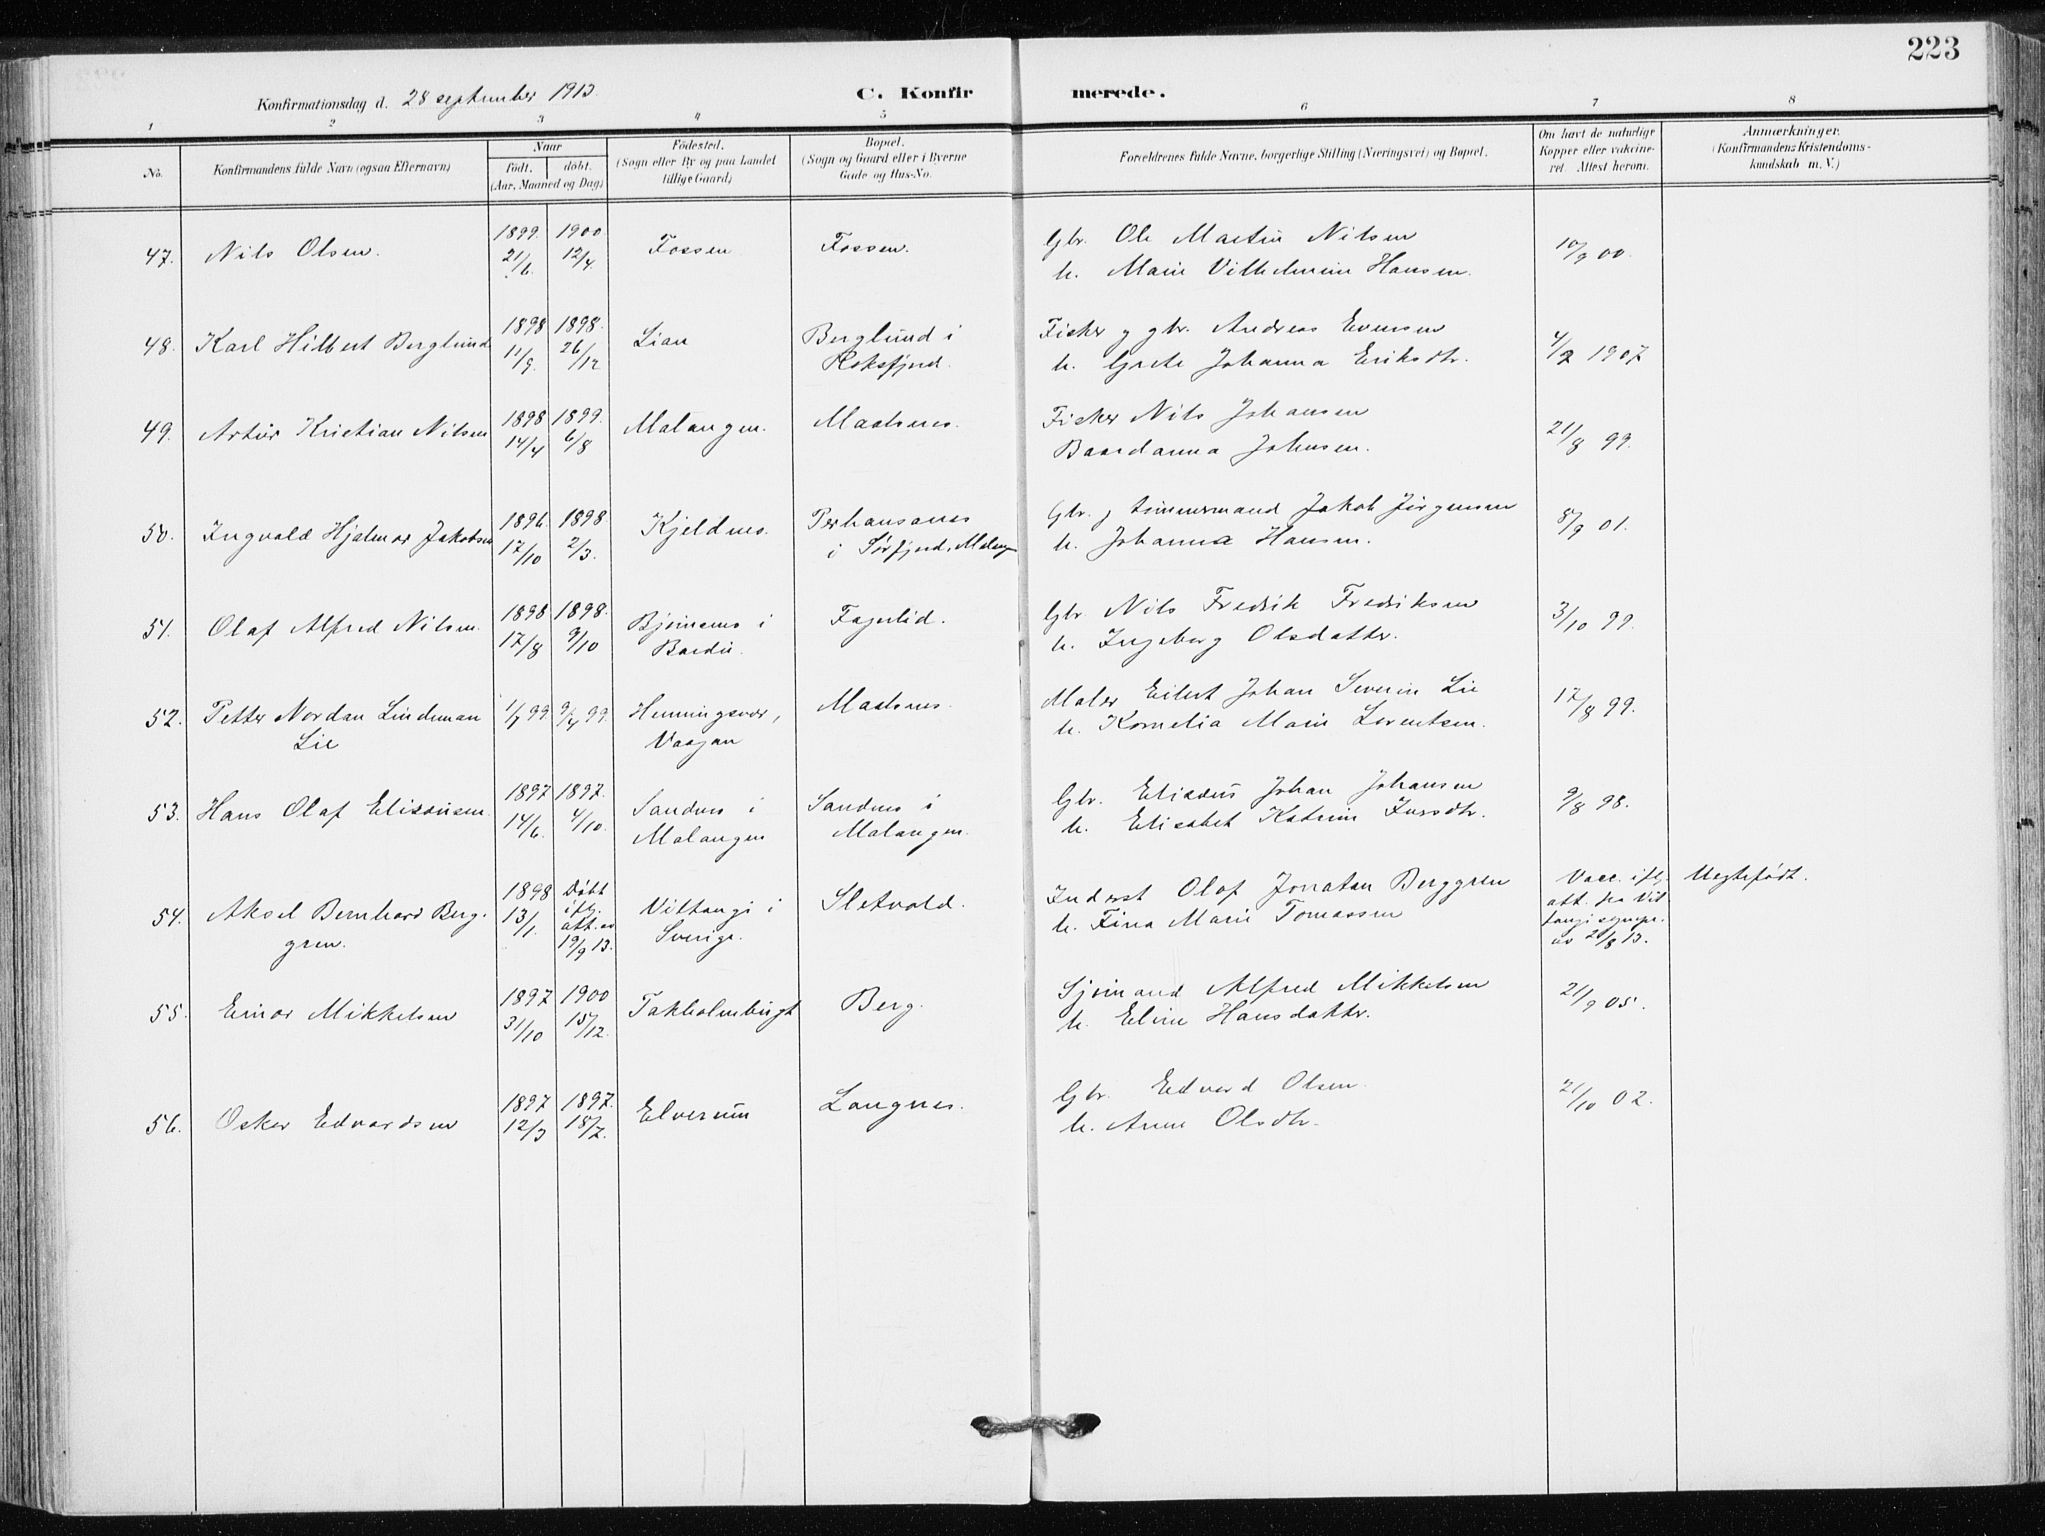 223
Konfirmationsdag d. 28 september 1913.
C. Konfirmerede.
1 2 3 4 5 6 7 8
No.
Konfirmandens fulde Navn (ogsaa Efternavn)
Naar
födt. döbt.
(Aar, Maaned og Dag)
Födested.
(Sogn eller By og paa Landet
tillige Gaard)
Bopæl.
(Sogn og Gaard eller i Byerne
Gade og Hus-No.
Forældrenes fulde Navne, borgerlige Stilling (Næringsvei) og Bopæl.
Om havt de naturlige
Kopper eller vakcine-
ret. Attest herom.
Anmærkninger.
(Konfirmandens Kristendoms-
kundskab m. V.)
47. Nils Olsen. 1899. 21/6. 1900 12/4. Fossen Fossen.
Gbr. Ole Martin Nilsen
h. Marie Vilhelmine Hansen.
10/9 00.
48. Karl Hilbert Berglund 1898 11/9. 1898. 26/12 Lian
Berglund i
Roksfjord.
Fisker g gbr. Andreas Evensen
h. Grete Johanna Eriksdtr.
4/2 1907
49. Artur Kristian Nilsen 1898 14/4 1899. 6/8 Malangen. Maalsnes.
Fisker Nils Johansen
Baardanna Johnsen.
21/8 99.
50. Ingvald Hjalmar Jakobsen 1896. 17/10 1898. 2/3. Kjeldnes.
Perhansanes
i Sørfjord, Malangen
Gbr. g tømmermand Jakob Jørgensen
h. Johanna Hansen.
8/9 01.
51. Olaf Alfred Nilsen. 1898 17/8 1898. 9/10
Bjørnsmo i
Bardu.
Fagerlid.
Gbr Nils Fredrik Fredriksen
h. Ingeborg Olsdatter.
3/10 99.
52. Petter Nordan Lindeman
Lie
1/1 99. 9/4 99.
Henningsvær,
Vaagan
Maalsnes.
Maler Eilert Johan Severin Lie
h. Kornelia Marie Lorentsen.
17/8 99.
53. Hans Olaf Elisæusen. 1897 14/6. 1897. 4/10.
Sandnes i
Malangen
Sandnes i
Malangen.
Gbr. Elisæus Johan Johansen
h. Elisabet Katrine Iversdtr.
9/8 98.
54. Aksel Bernhard Berg-
gren.
1898 13/1.
Døbt
iflg.
att. av
19/9 13.
Vittangi i
Sverige.
Sletvold.
Inderst Olof Jonatan Berggren
h. Fina Marie Tomassen
Vacc. iflg.
att. fra Vit
tangi sognepr.
av 21/8 13.
Uegtefødt.
55. Einar Mikkelsen 1897 31/10 1900 15/12. Takholmbugt Berg.
Sjømand Alfred Mikkelsen
h. Eline Hansdatter.
21/9 05.
56. Oskar Edvardsen 1897 12/3 1897. 18/7. Elverum Langnes.
Gbr. Edvard Olsen.
h. Anne Olsdtr.
21/10 02.